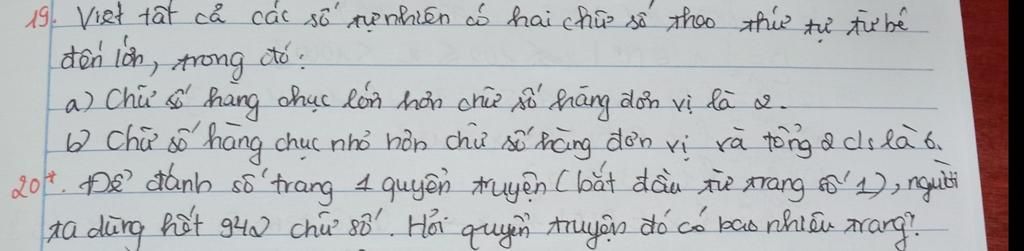 19. Viết tất cả các số tự nhiên có hai chữ số theo thứ tự từ bé
đến lớn, trong đó:
a) Chữ số hàng chục lớn hơn chữ số hàng đơn vị là 2.
b) Chữ số hàng chục nhỏ hơn chữ số hàng đơn vị và tổng 2 cls là 6.
20*. Để đánh số trang 1 quyển truyện (bắt đầu từ trang số 1), người
ta dùng hết 942 chữ số. Hỏi quyển truyện đó có bao nhiêu trang?